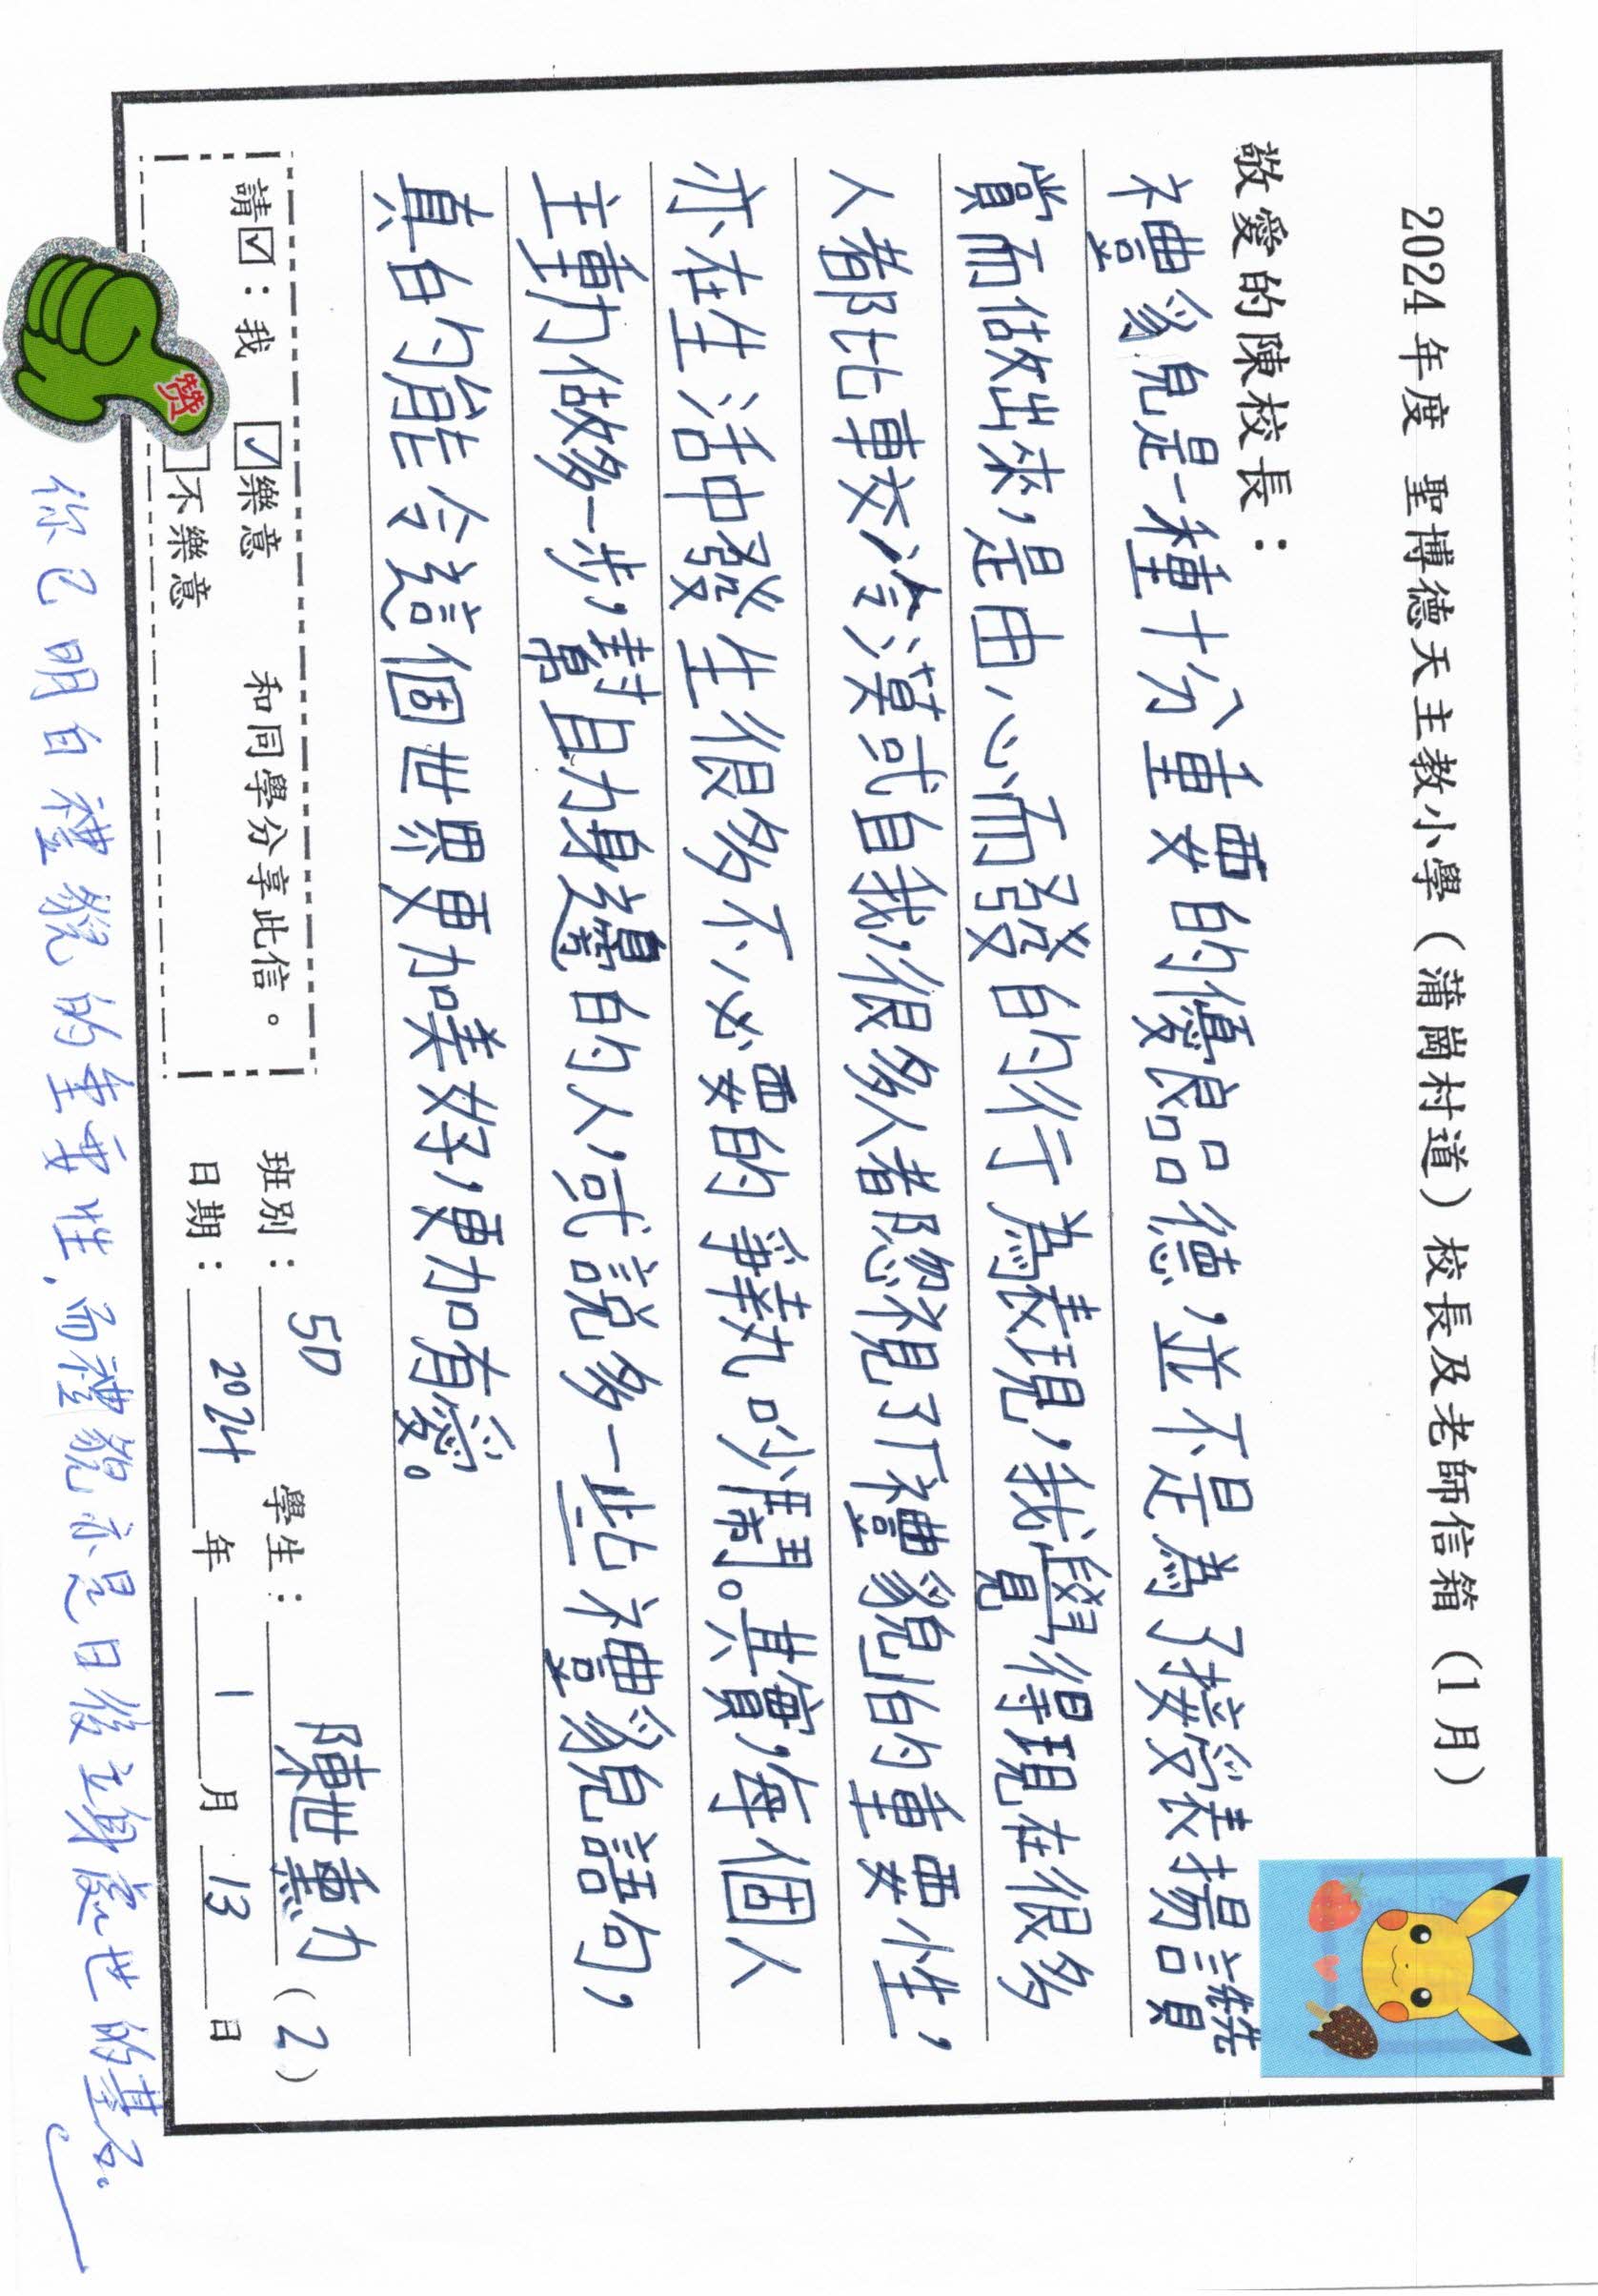 2024年度 聖博德天主教小學（蒲崗村道）校長及老師信箱（1月）
敬愛的陳校長：
禮貌是一種十分重要的優良品德，並不是為了接受表揚讚
賞而做出來，是由心而發的行為表現，我覺得現在很多
人都比較冷漠或自我，很多人都忽視了禮貌的重要性，
亦在生活中發生很多不必要的爭執吵鬧。其實，每個人
主動做多一步，幫助身邊的人，或說多一些禮貌語句，
真的能令這個世界更加美好，更加有愛。
請☑：我 ☑樂意 和同學分享此信。
□不樂意
班別：5D 學生：陳世勳（2）
日期：2024年1月13日
讚
你已明白禮貌的重要性，而禮貌亦是日後立身處世的基石。